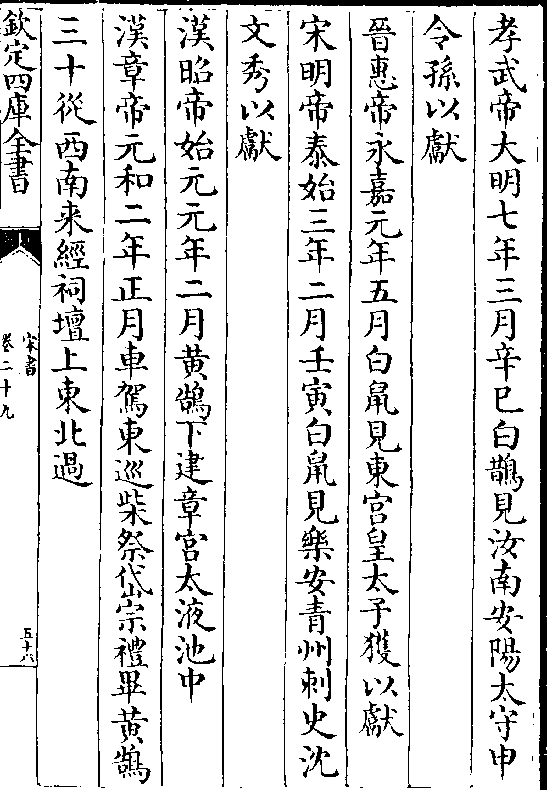 孝武帝大明七年三月辛巳白鵲見汝南安陽太守申
令孫以獻
晉惠帝永嘉元年五月白䑕見東宮皇太子獲以獻
宋明帝泰始三年二月壬寅白䑕見樂安青州刺史沈
文秀以獻
漢昭帝始元元年二月黄鵠下建章宫太液池中
漢章帝元和二年正月車駕東巡柴祭岱宗禮畢黄鵠
三十從西南来經祠壇上東北過
欽定四庫全書
宋書
卷二十九
五十六